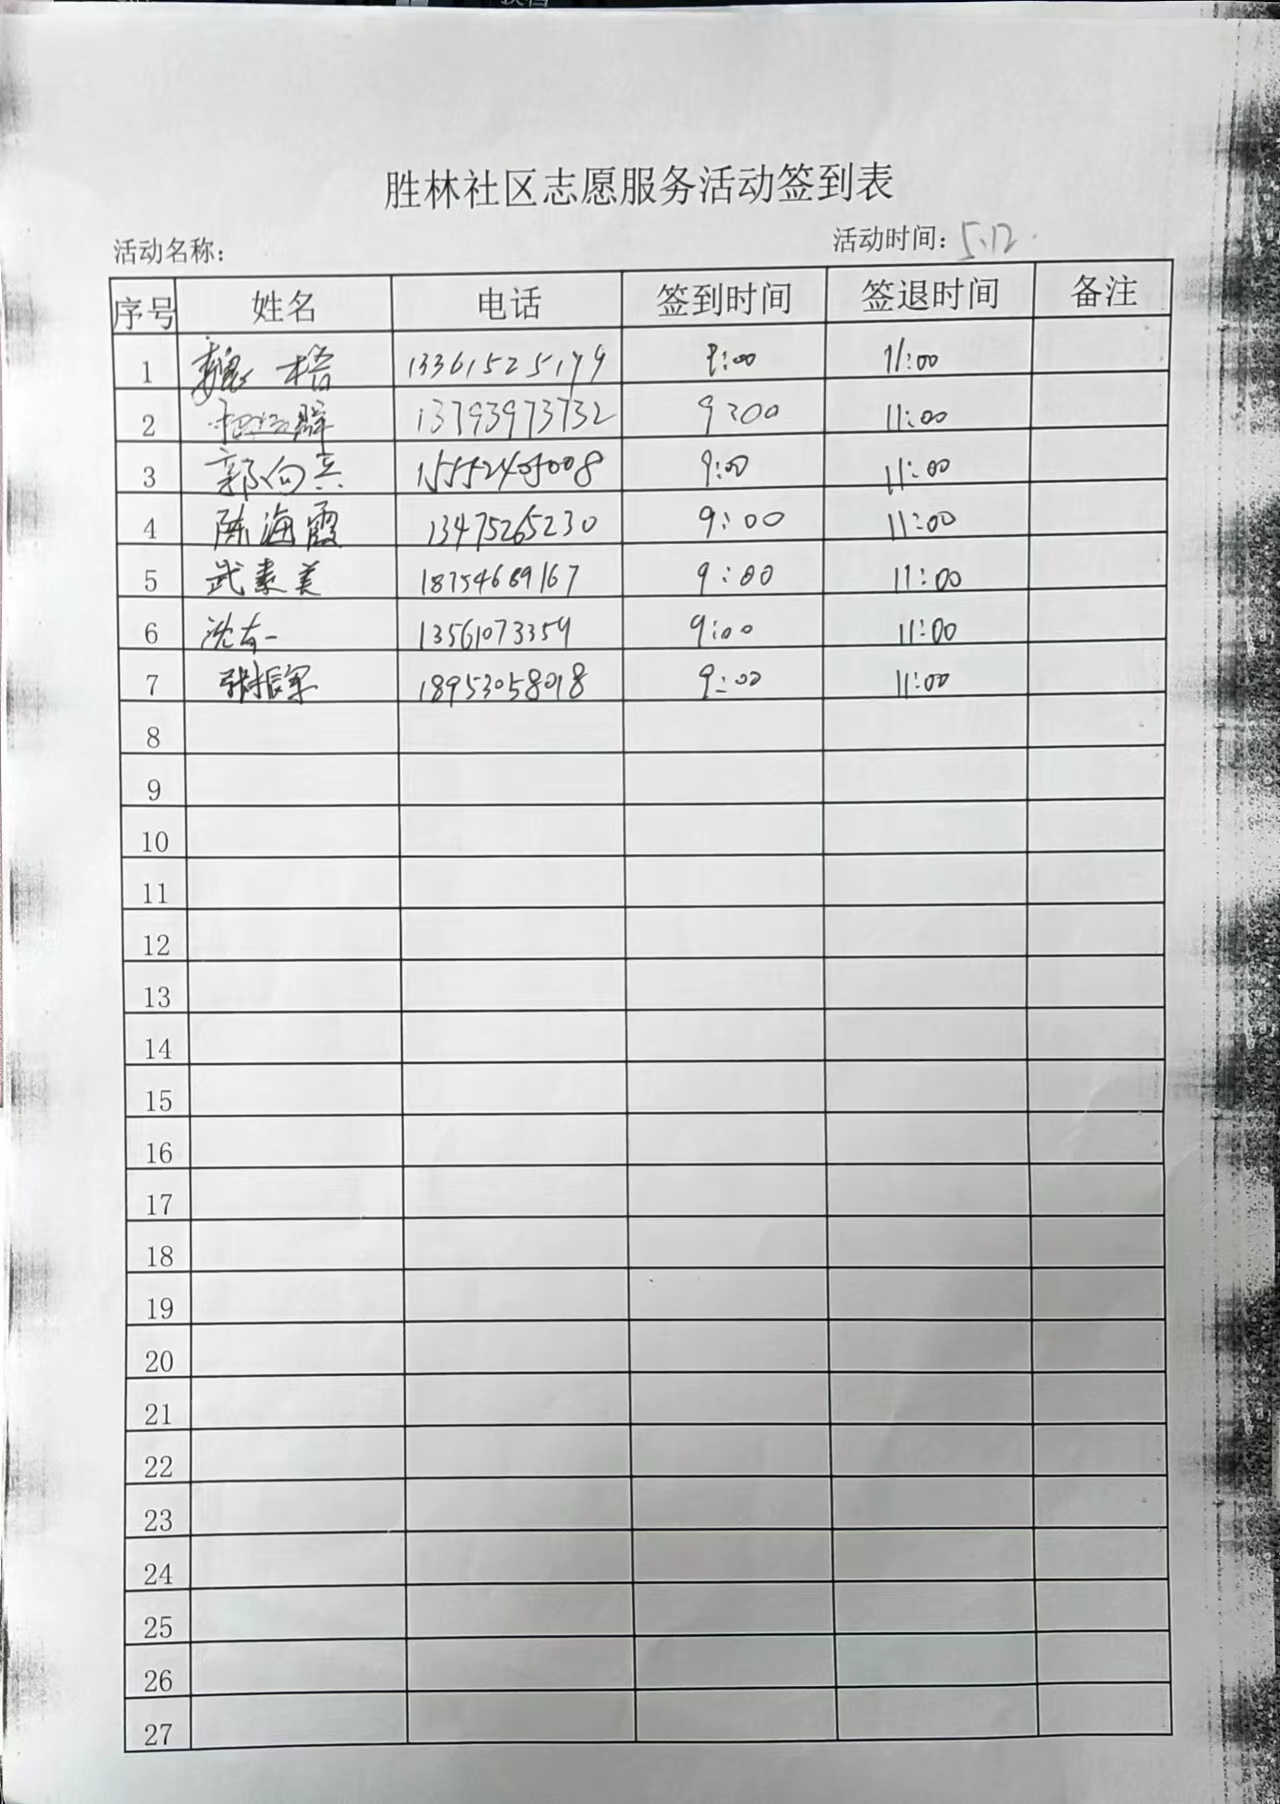 胜林社区志愿服务活动签到表
活动名称： 活动时间：5.12
序号 姓名 电话 签到时间 签退时间 备注
1 魏 13361525199 9:00 11:00
2 13793973732 9:00 11:00
3 郭向兵 15552405008 9:00 11:00
4 陈海霞 13475265230 9:00 11:00
5 武素美 18754689167 9:00 11:00
6 沈 13561073359 9:00 11:00
7 张振军 18953058018 9:00 11:00
8
9
10
11
12
13
14
15
16
17
18
19
20
21
22
23
24
25
26
27